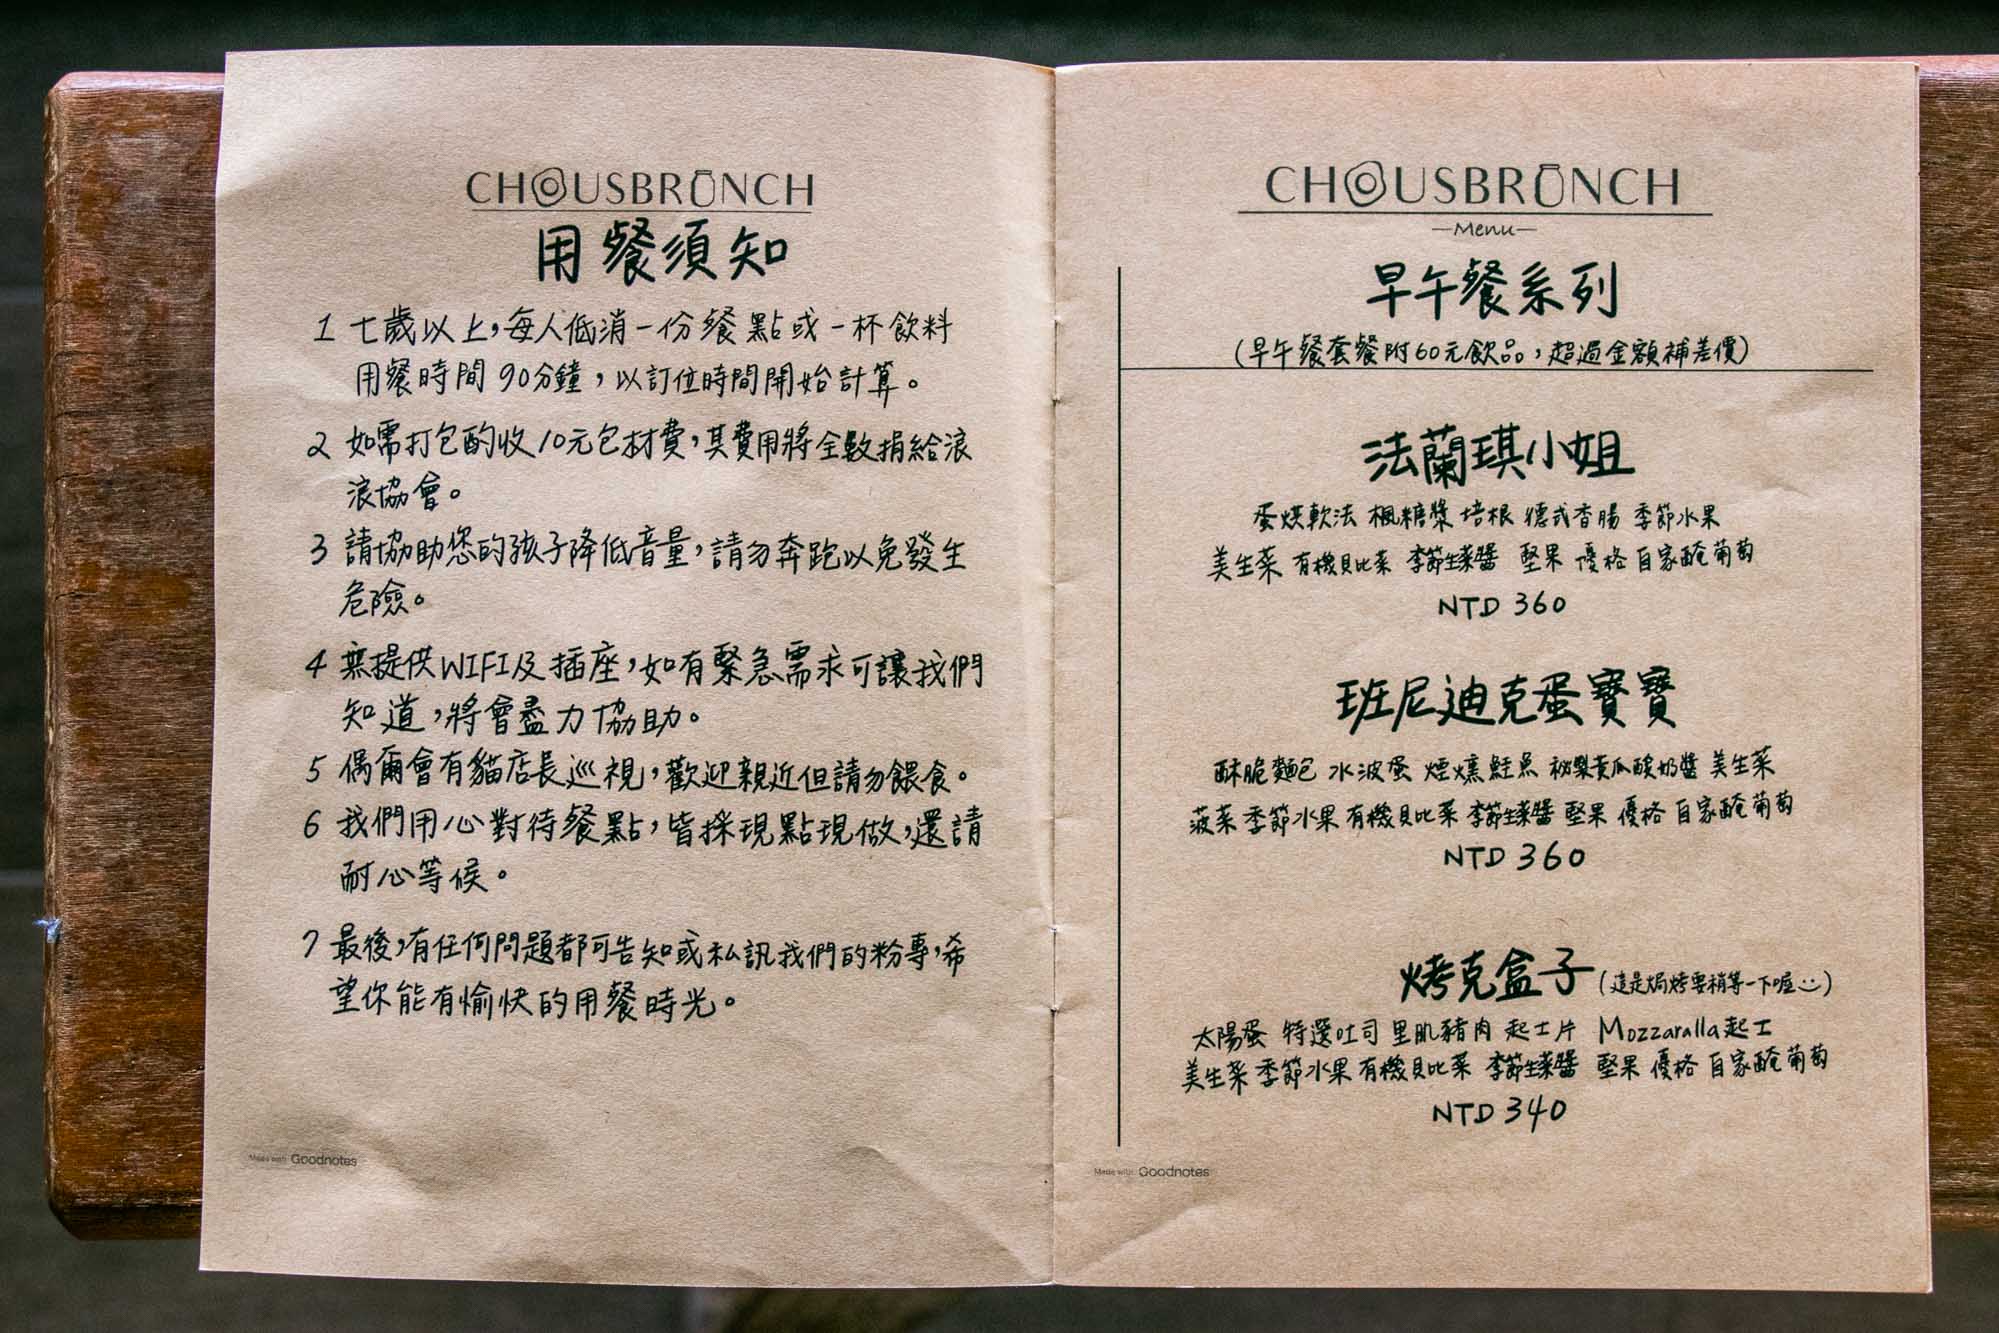 CHOUSBRUNCH
用餐須知
1 七歲以上,每人低消一份餐點或一杯飲料
用餐時間90分鐘,以訂位時間開始計算。
2 如需打包酌收10元包材費,其費用將全數捐給浪
浪協會。
3 請協助您的孩子降低音量,請勿奔跑以免發生
危險。
4 無提供WIFI及插座,如有緊急需求可讓我們
知道,將會盡力協助。
5 偶爾會有貓店長巡視,歡迎親近但請勿餵食。
6 我們用心對待餐點,皆採現點現做,還請
耐心等候。
7 最後,有任何問題都可告知或私訊我們的粉專,希
望你能有愉快的用餐時光。
Made with Goodnotes
CHOUSBRUNCH
—Menu—
早午餐系列
(早午餐套餐附60元飲品,超過金額補差價)
法蘭琪小姐
蛋烘軟法 楓糖漿 培根 德式香腸 季節水果
美生菜 有機貝比菜 季節生菜醬 堅果 優格 自家醃葡萄
NTD 360
班尼迪克蛋寶寶
酥脆麵包 水波蛋 煙燻鮭魚 秘製黃瓜酸奶醬 美生菜
菠菜 季節水果 有機貝比菜 季節生菜醬 堅果 優格 自家醃葡萄
NTD 360
烤克盒子 (這是焗烤要稍等一下喔)
太陽蛋 特選吐司 里肌豬肉 起士片 Mozzaralla起士
美生菜 季節水果 有機貝比菜 季節生菜醬 堅果 優格 自家醃葡萄
NTD 340
Made with Goodnotes